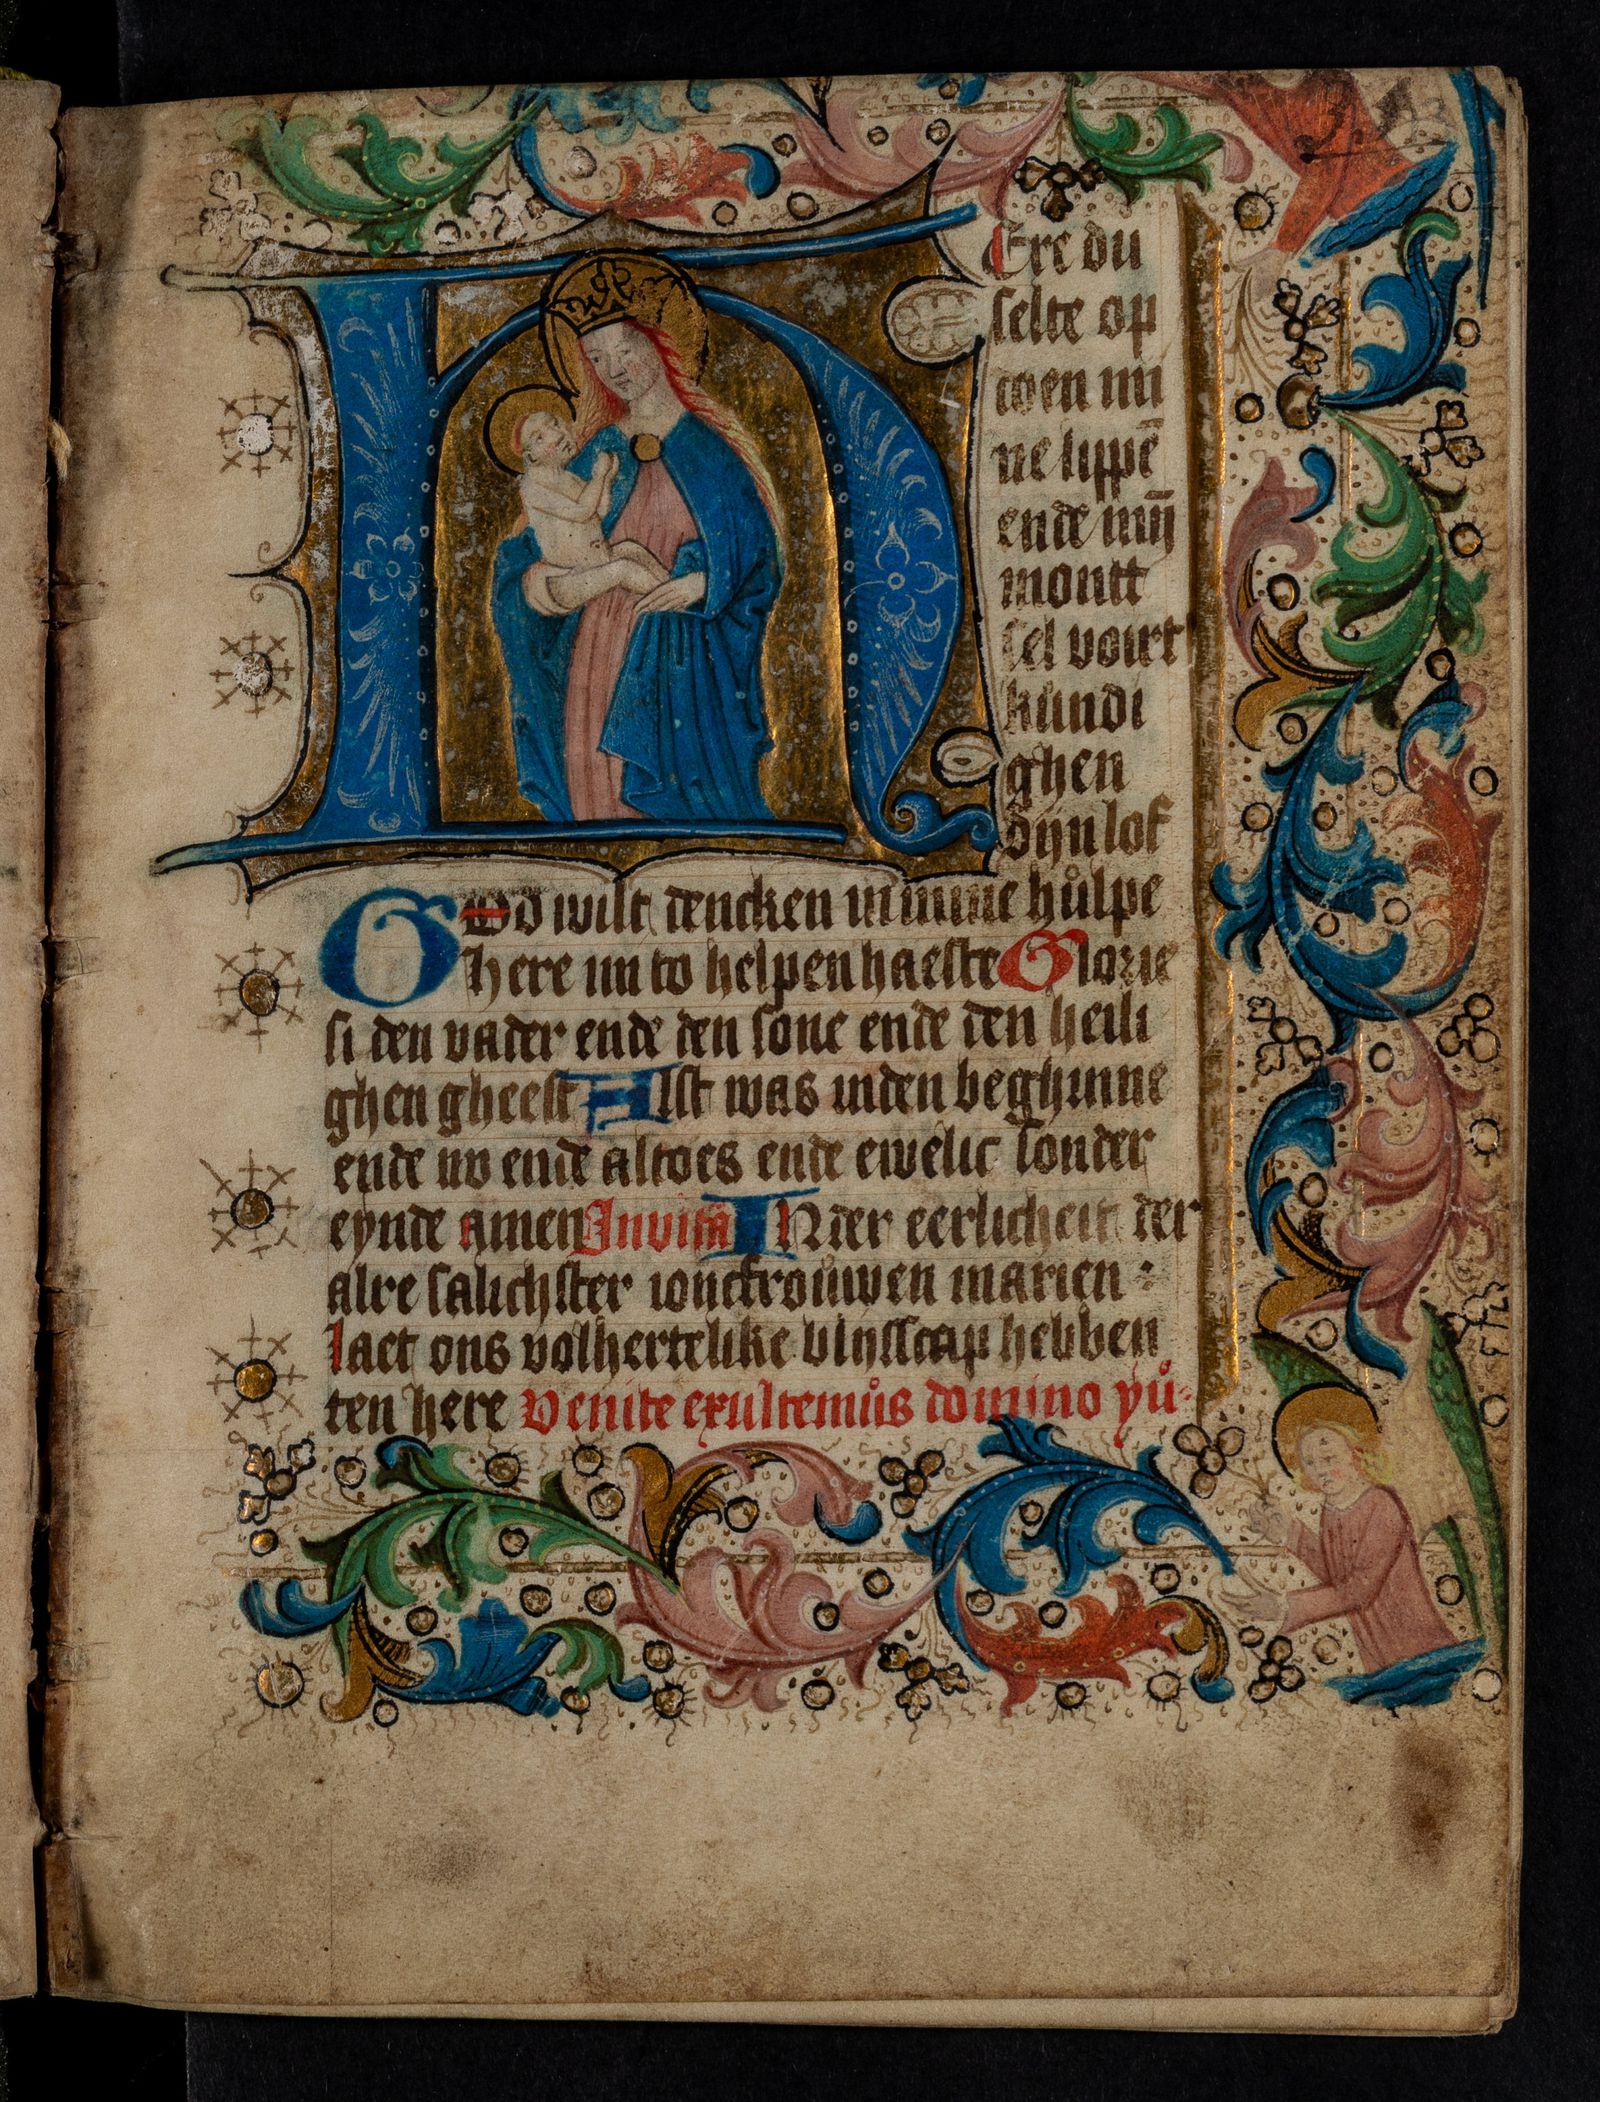 HEre du
selte op
doen mi
ne lippē
ende mijn
montt
sel vort
kundi
ghen
dijn lof
GOd wilt dencken in mine hůlpe
here mi to helpen haeste Glorie
si den vader ende den sone ende den heili
ghen gheest Alst was inden beghinne
ende nv ende altoes ende ewelic sonder
eynde amen Invita INder eerlicheit der
alre salichster ionckfrouwen marien :
laet ons volhertelike blijsscap hebben
ten here Venite exultemůs domino pů